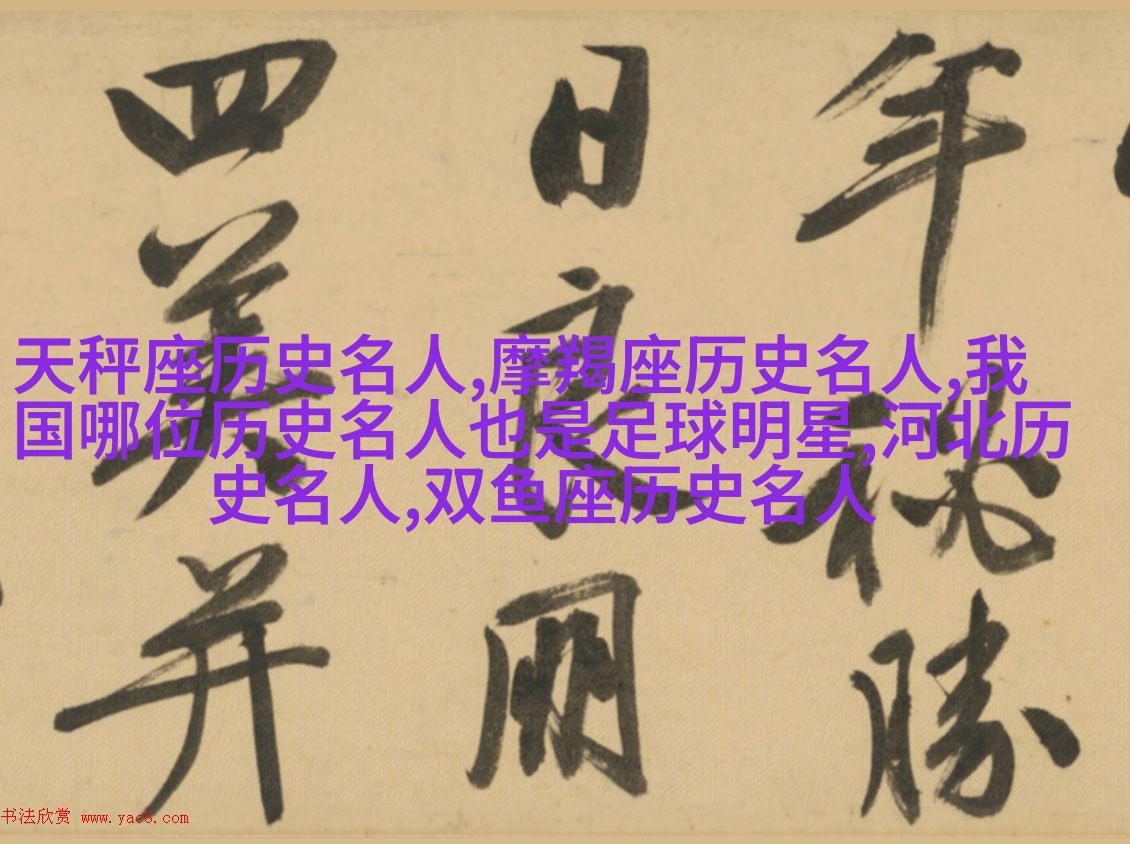 年勝
日良朋
四美并
天秤座历史名人,摩羯座历史名人,我
国哪位历史名人也是足球明星,河北历
史名人,双鱼座历史名人
书法欣赏 www.yac8.com